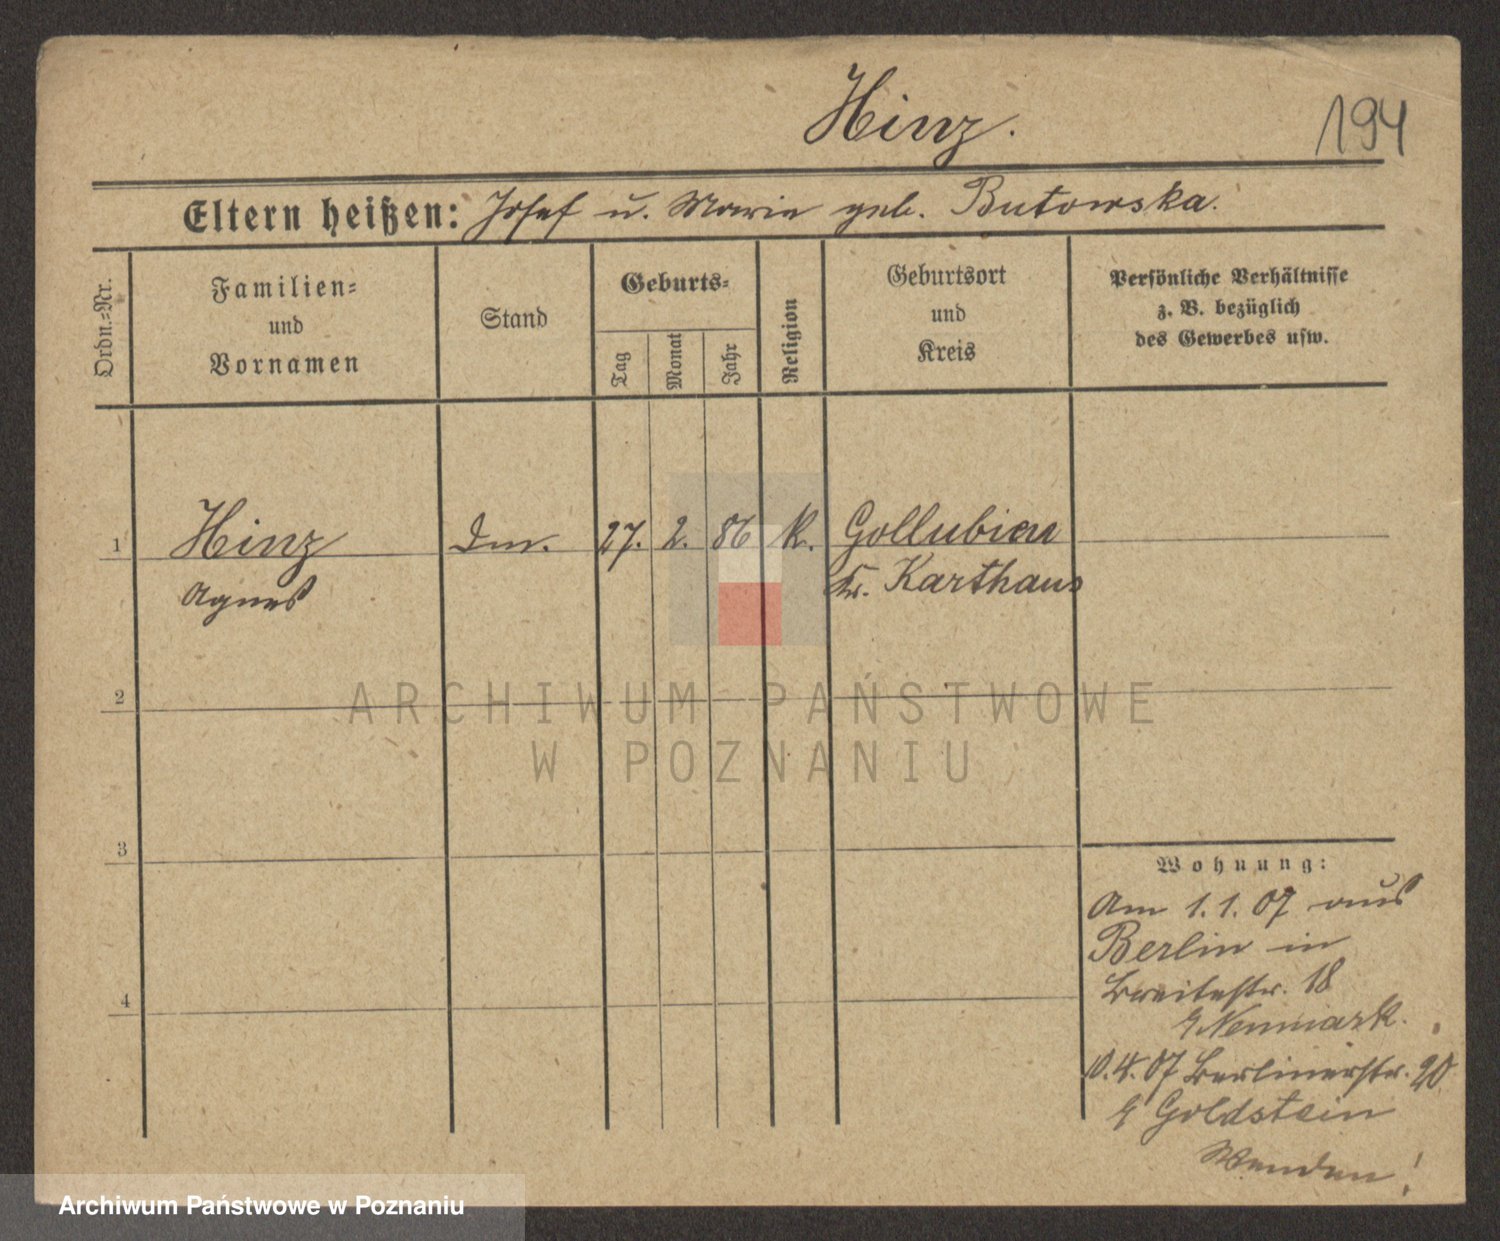 Hinz.
194
Eltern heißen: Josef u. Marie geb. Butowska.
Ordn.=Nr.
Familien=
und
Vornamen
Stand
Geburts=
Tag
Monat
Jahr
Religion
Geburtsort
und
Kreis
Persönliche Verhältnisse
z. B. bezüglich
des Gewerbes usw.
1
Hinz
Agnes
27.
2.
86
k.
Gollubien
Kr. Karthaus
2
3
4
ARCHIWUM PAŃSTWOWE
W POZNANIU
Wohnung:
Am 1.1.07 aus
Berlin in
Breitestr. 18
Neumark.
10.4.07 Berlinerstr. 20
Goldstein
Wenden!
Archiwum Państwowe w Poznaniu